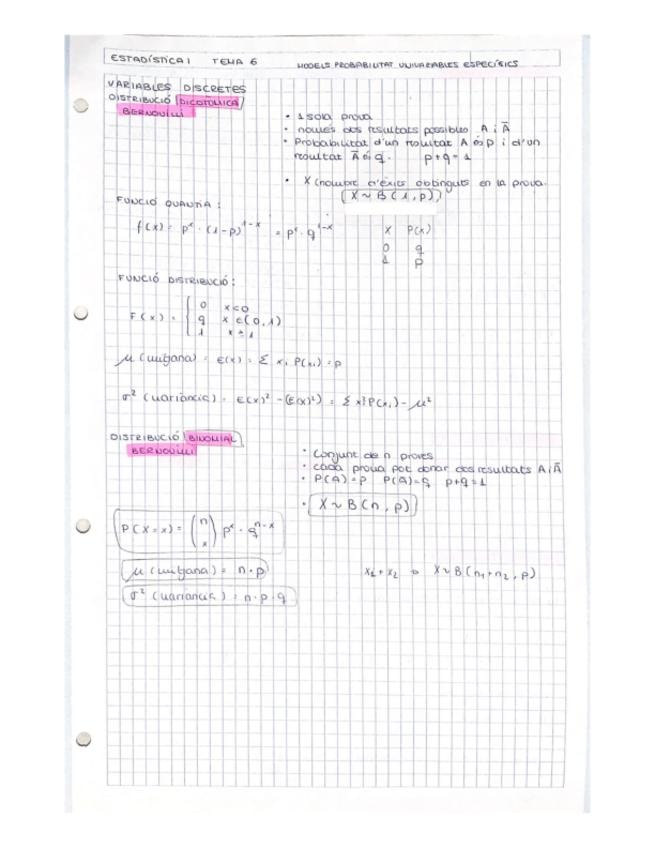 ESTADÍSTICA I TEMA 6 MODELS PROBABILITAT UNIVARIABLES ESPECÍFICS
VARIABLES DISCRETES
DISTRIBUCIÓ DICOTÒMICA
BERNOUILLI
• 1 sola prova
• només dos resultats possibles A i Ā
• Probabilitat d'un resultat A és p i d'un
resultat Ā és q. p+q=1
• X (nombre d'èxits obtinguts en la prova.
X ~ B(1, p)
FUNCIÓ QUANTIA:
f(x) = pˣ · (1-p)¹⁻ˣ = pˣ · q¹⁻ˣ
X P(x)
0 q
1 p
FUNCIÓ DISTRIBUCIÓ:
F(x) = { 0 x<0
q x ∈ (0,1)
1 x ≥ 1
μ (mitjana) = E(x) = Σ xᵢ P(xᵢ) = p
σ² (variància) = E(x)² - (E(x)²) = Σ xᵢ² P(xᵢ) - μ²
DISTRIBUCIÓ BINOMIAL
BERNOUILLI
• Conjunt de n proves
• cada prova pot donar dos resultats A i Ā
• P(A) = p P(Ā) = q p+q=1
• X ~ B(n, p)
P(X=x) = (n x) pˣ · qⁿ⁻ˣ
μ (mitjana) = n·p
x₁ + x₂ → X ~ B(n₁+n₂, p)
σ² (variància) = n·p·q